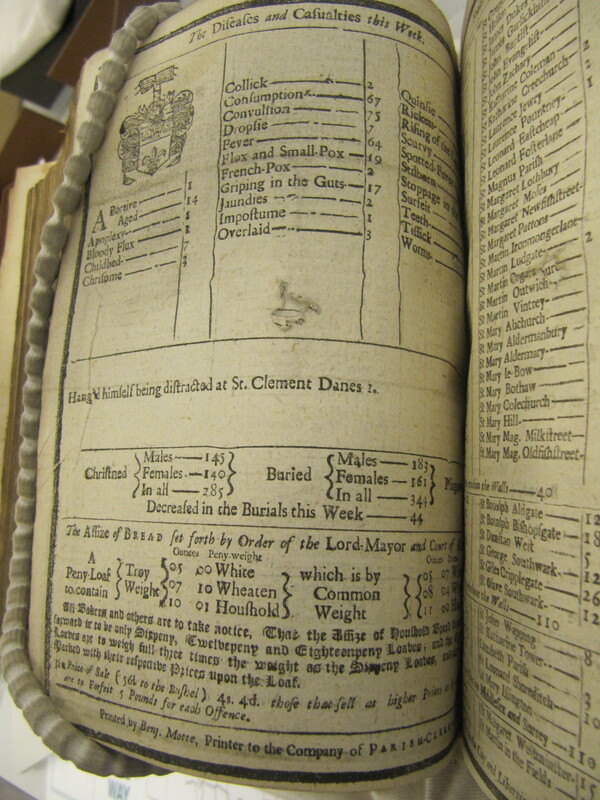 The Diseases and Casualties this Week.
ABortive 1
Aged 14
Apoplexy 1
Bloody Flux 1
Childbed 7
Chrisome 3
Collick 2
Consumption 67
Convulsion 75
Dropsie 7
Fever 64
Flox and Small-Pox 19
French-Pox 2
Griping in the Guts 17
Jaundies 2
Impostume 1
Overlaid 3
Quinsie
Rickets
Rising of the
Scurvy
Spotted
Stilborn
Stoppage in
Surfeit
Teeth
Tissick
Worms
Hang'd himself being distracted at St. Clement Danes 1.
Christned Males 145 Females 140 In all 285
Buried Males 183 Females 161 In all 344
Decreased in the Burials this Week 44
The Assize of BREAD set forth by Order of the Lord-Mayor and Court of
Ounces Peny-weight
A Peny-Loaf to contain Troy Weight 05 00 White 07 10 Wheaten 10 01 Houshold which is by Common Weight
All Bakers and others are to take notice, That the Assize of Houshold Bread
is to be only Sixpeny, Twelvepeny and Eighteenpeny Loaves; and the
Loaves are to weigh full three times the weight as the Sixpeny Loaves, and
Marked with their respective Prices upon the Loaf.
The Price of Salt (56 l. to the Bushel) 4s. 4d. those that sell at higher Prices
are to Forfeit 5 Pounds for each Offence.
Printed by Benj. Motte, Printer to the Company of PARISH-CLERKS
John Evangelist
John Zachary
Katharine Coleman
Katharine Creechurch
Laurence Jewry
Laurence Pountney
Leonard Eastcheap
Leonard Fosterlane
Magnus Parish
Margaret Lothbury
Margaret Moses
Margaret Newfishstreet
Margaret Pattons
St Martin Ironmongerlane
St Martin Ludgate
St Martin Orgars
St Martin Outwich
St Martin Vintrey
St Mary Abchurch
St Mary Aldermanbury
St Mary Aldermary
St Mary le-Bow
St Mary Bothaw
St Mary Colechurch
St Mary Hill
St Mary Mag. Milkstreet
St Mary Mag. Oldfishstreet
within the Walls 40
St Botolph Aldgate
St Botolph Bishopsgate 18
St Dunstan West 5
St George Southwark 12
St Giles Cripplegate 26
St Olave Southwark 12
the Walls 110
St John Wapping
St Katharine Tower
Lambeth Parish
St Leonard Shoreditch
St Mary Islington
Middlesex and Surrey 110
St Margaret Westminster
St Martin in the Fields
WAY